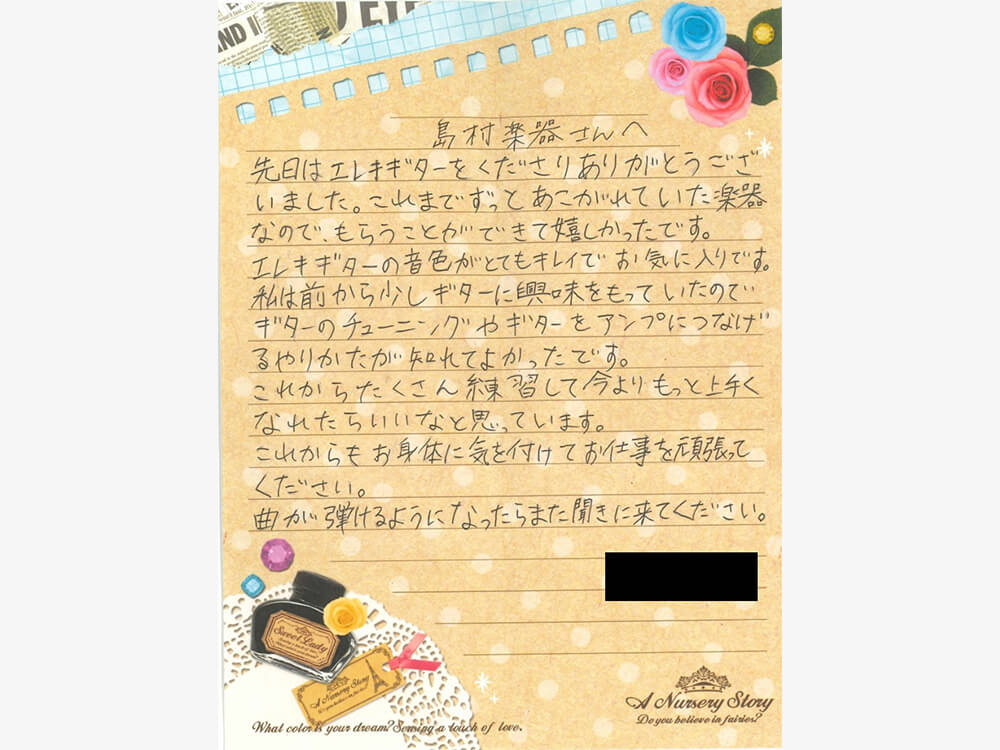 島村楽器さんへ
先日はエレキギターをくださりありがとうござ
いました。これまでずっとあこがれていた楽器
なので、もらうことができて嬉しかったです。
エレキギターの音色がとてもキレイでお気に入りです。
私は前から少しギターに興味をもっていたので
ギターのチューニングやギターをアンプにつなげ
るやりかたが知れてよかったです。
これからたくさん練習して今よりもっと上手く
なれたらいいなと思っています。
これからもお身体に気を付けてお仕事を頑張って
ください。
曲が弾けるようになったらまた聞きに来てください。
Sweet Lady
A Nursery Story
Do you believe in fairies?
What color is your dream? Sensing a touch of love.
A Nursery Story
Do you believe in fairies?